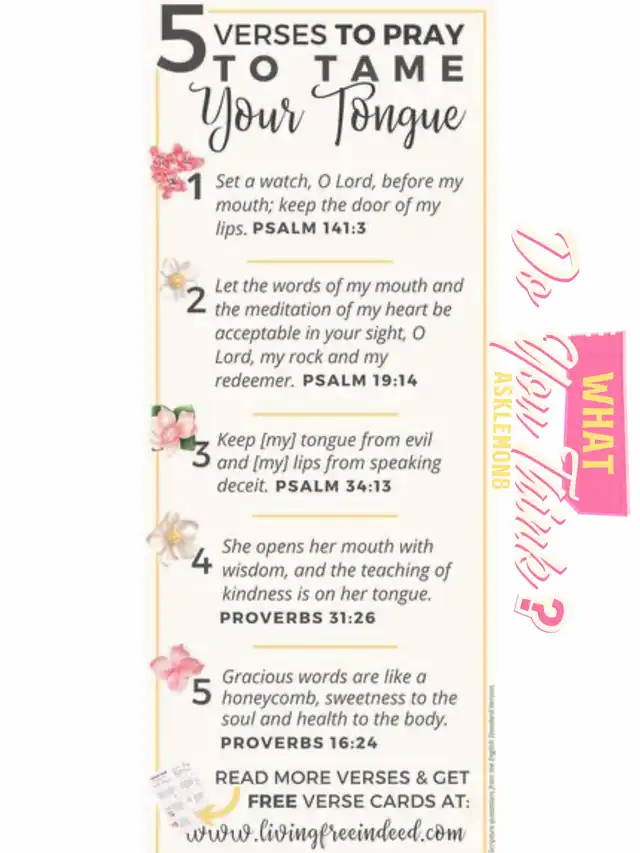 5 VERSES TO PRAY
TO TAME
Your Tongue
1 Set a watch, O Lord, before my
mouth; keep the door of my
lips. PSALM 141:3
2 Let the words of my mouth and
the meditation of my heart be
acceptable in your sight, O
Lord, my rock and my
redeemer. PSALM 19:14
3 Keep [my] tongue from evil
and [my] lips from speaking
deceit. PSALM 34:13
4 She opens her mouth with
wisdom, and the teaching of
kindness is on her tongue.
PROVERBS 31:26
5 Gracious words are like a
honeycomb, sweetness to the
soul and health to the body.
PROVERBS 16:24
READ MORE VERSES & GET
FREE VERSE CARDS AT:
www.livingfreeindeed.com
Scripture quotations from the English Standard Version.
WHAT
Do You Think?
ASKLEMON8